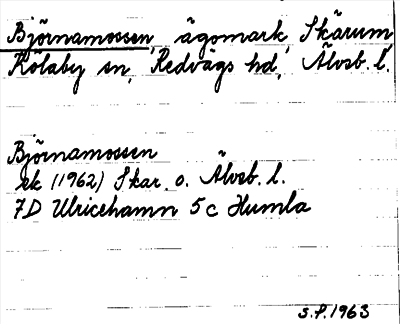 Björnamossen, ägomark, Skärum,
Kölaby sn, Redvägs hd, Älvsb. l.
Björnamossen
ek (1962) Skar. o. Älvsb. l.
7D Ulricehamn 5c Humla
S.P. 1963